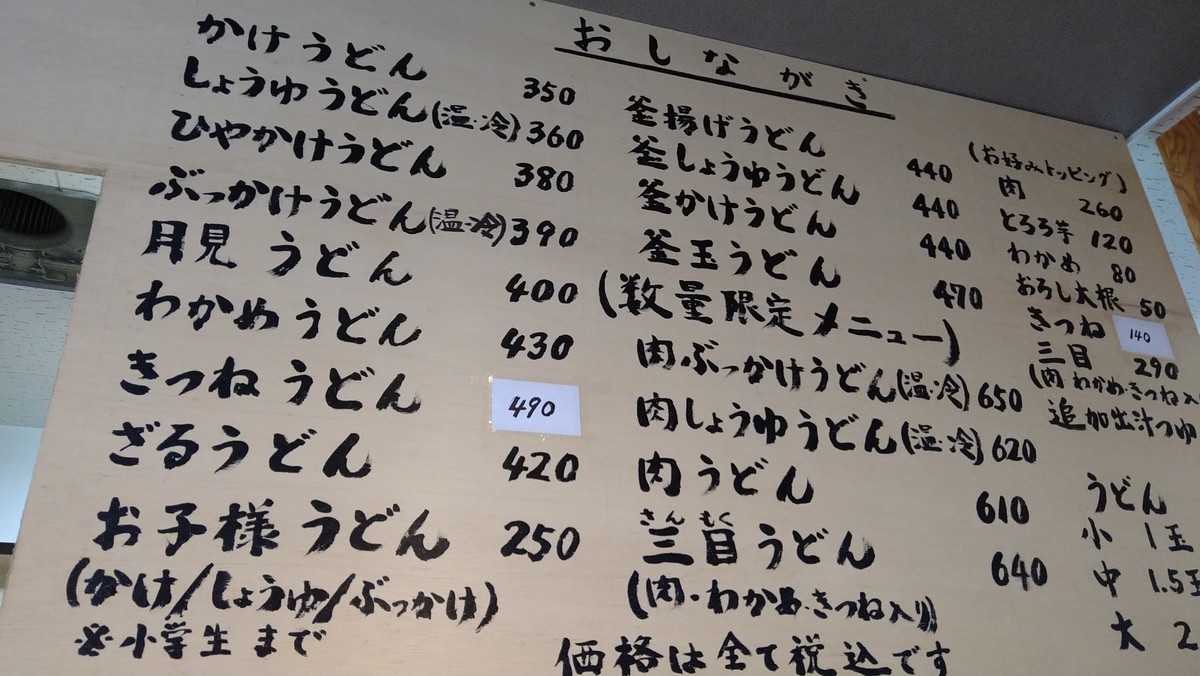 おしながき
かけうどん 350
しょうゆうどん(温・冷) 360
ひやかけうどん 380
ぶっかけうどん(温・冷) 390
月見うどん 400
わかめうどん 430
きつねうどん 490
ざるうどん 420
お子様うどん 250
(かけ/しょうゆ/ぶっかけ)
※小学生まで
釜揚げうどん 440
釜しょうゆうどん 440
釜かけうどん 440
釜玉うどん 470
(数量限定メニュー)
肉ぶっかけうどん(温・冷) 650
肉しょうゆうどん(温・冷) 620
肉うどん 610
さん もく
三目うどん 640
(肉・わかめ・きつね入り)
価格は全て税込です
(お好みトッピング)
肉 260
とろろ芋 120
わかめ 80
おろし大根 50
きつね 140
三目 290
(肉・わかめ・きつね入
追加出汁つゆ
うどん
小 1玉
中 1.5玉
大 2